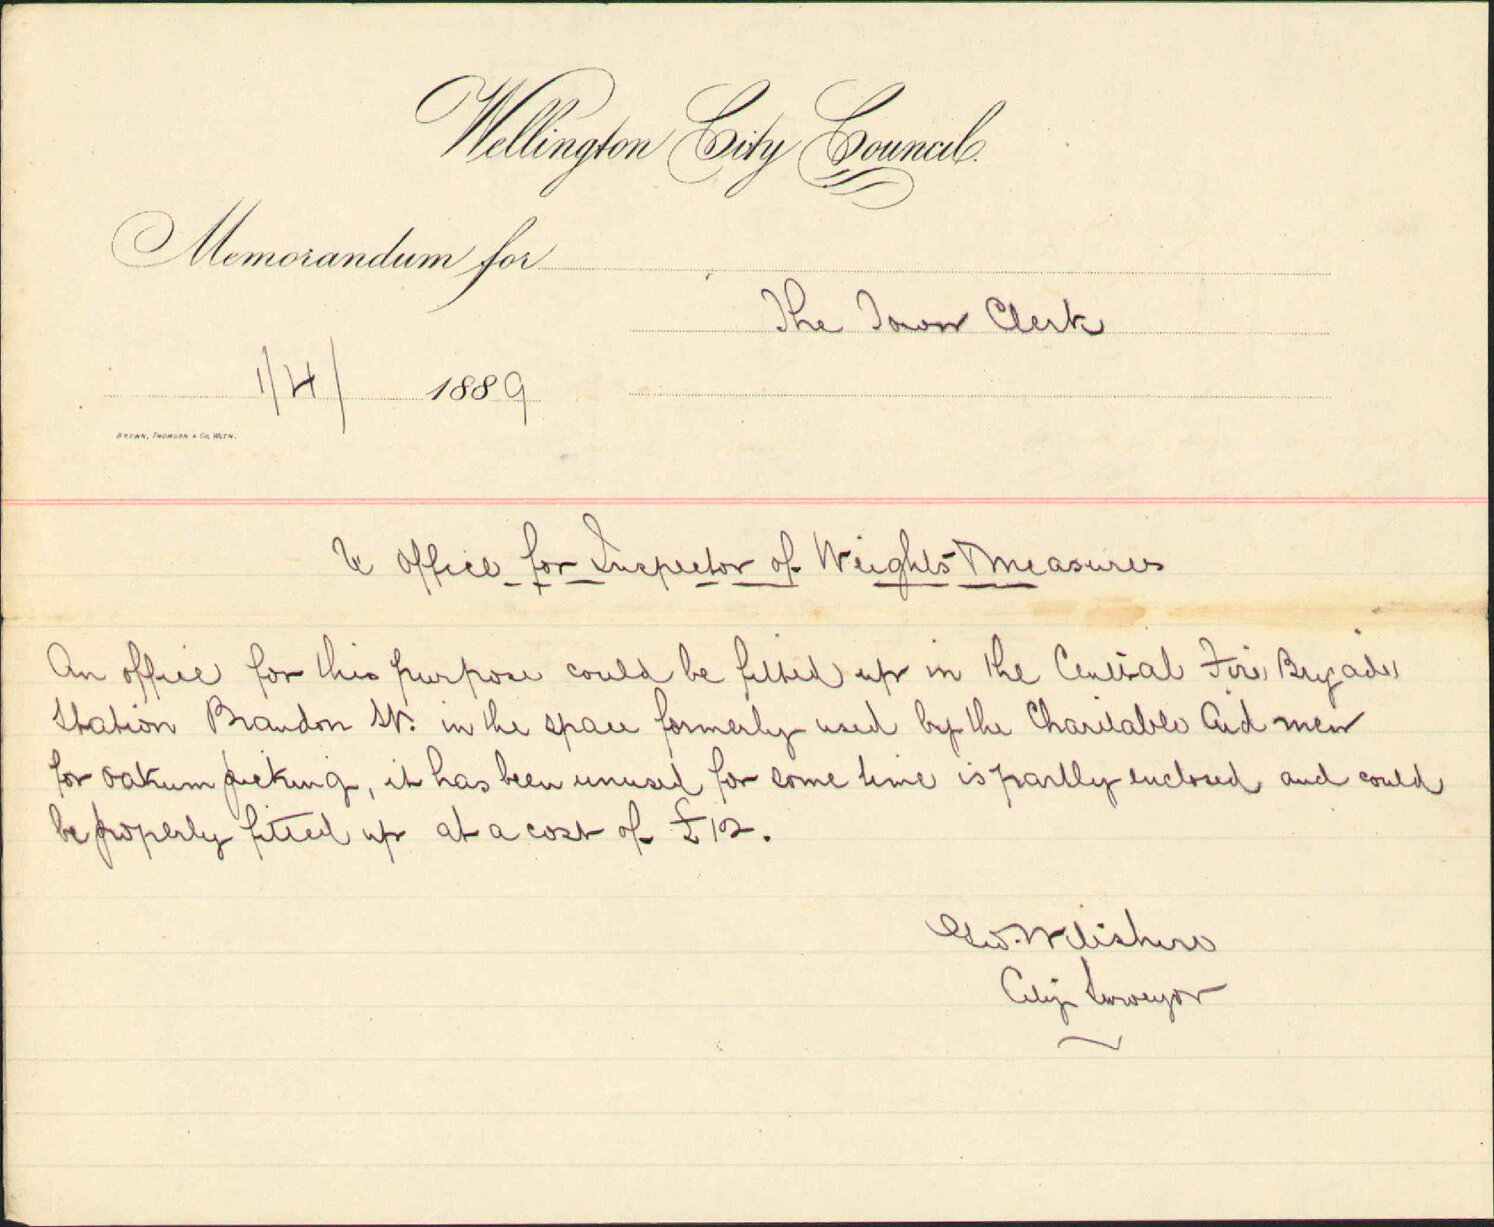 Wellington City Council.
Memorandum for
The Town Clerk
1/4/ 1889
BROWN, THOMSON & Co, WLTN.
re office for Inspector of Weights & Measures
An office for this purpose could be fitted up in the Central Fire Brigade
Station Brandon St. in the space formerly used by the Charitable Aid men
for oakum picking, it has been unused for some time is partly enclosed and could
be properly fitted up at a cost of £12.
Geo. Wiltshire
City Surveyor